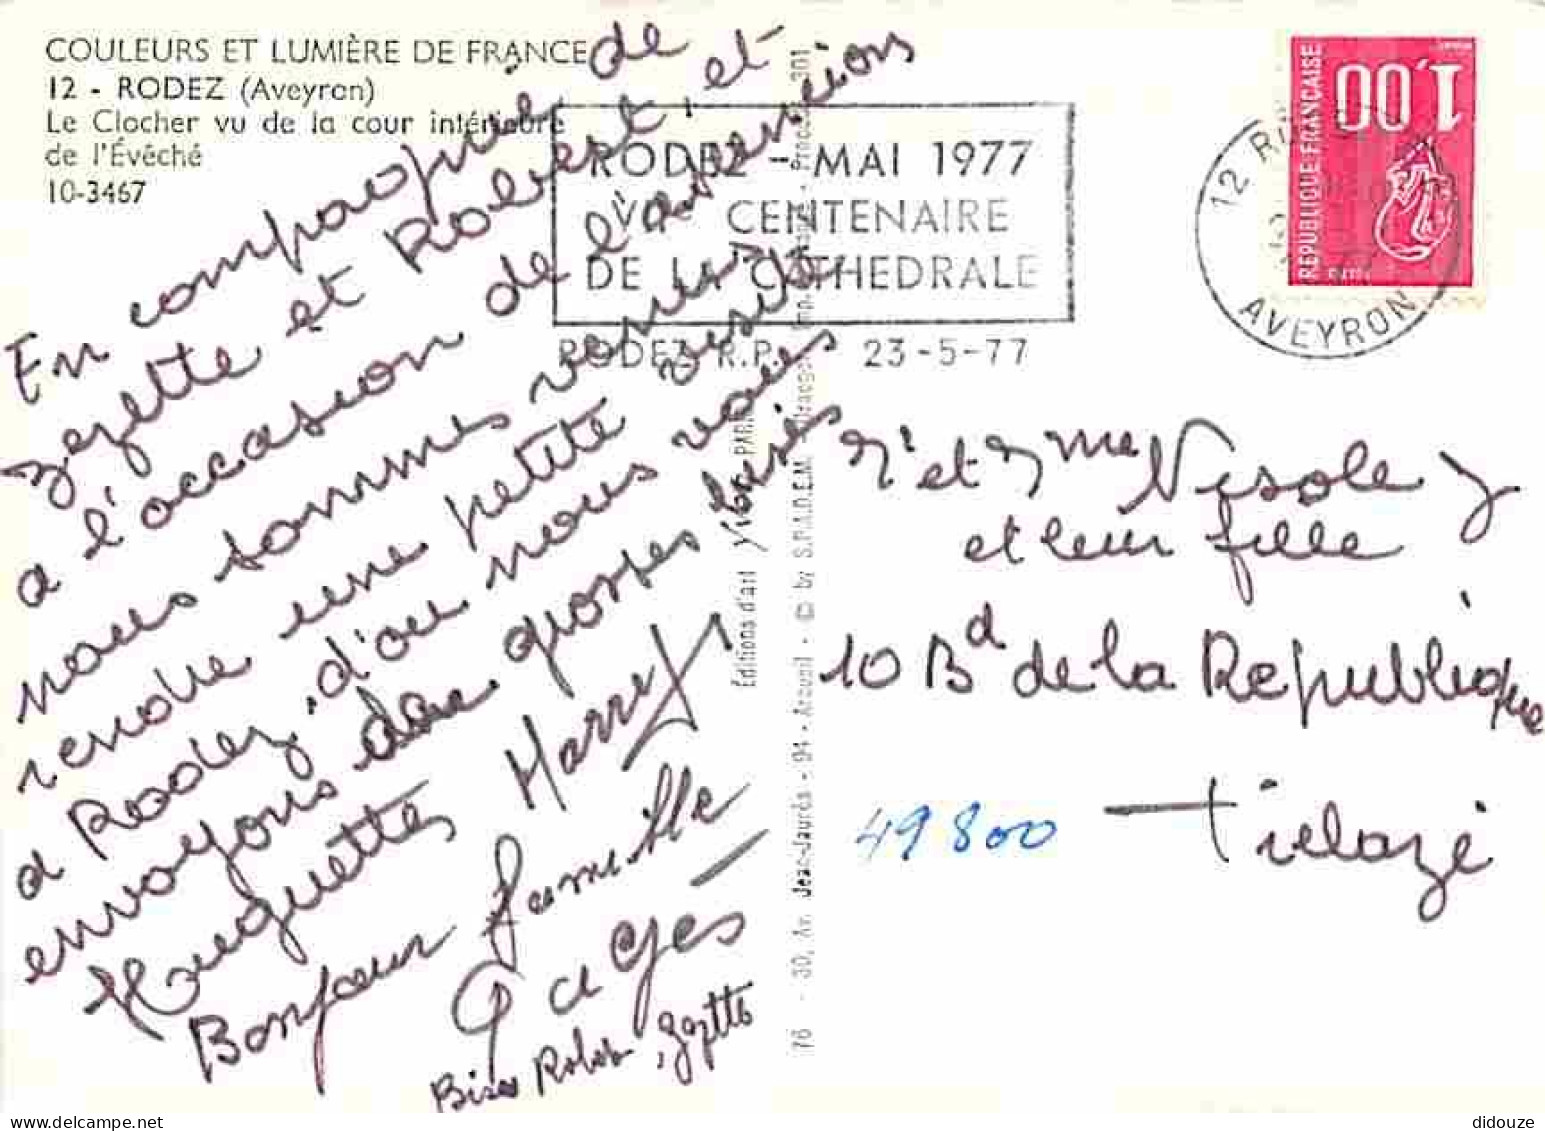 COULEURS ET LUMIÈRE DE FRANCE
12 - RODEZ (Aveyron)
Le Clocher vu de la cour intérieure
de l'Évêché
10-3467
En compagnie de
zezette et Robert, et
a l'occasion de l'ascension
nous sommes venus
rendre une petite visite
a Rodez, d'ou nous vous
envoyons des grosses bises
Huguette Harry
Bonjour famille
Gages
Bises Robert, Zezette
RODEZ - MAI 1977
VIIe CENTENAIRE
DE LA CATHEDRALE
RODEZ R.P. 23-5-77
12 RODEZ
AVEYRON
1,00
REPUBLIQUE FRANÇAISE
Editions d'art YVON PARIS
76 - 30, Av. Jean-Jaurès - 94 - Arcueil - © by S.P.A.D.E.M.
Mr et Mme Nisole
et leur fille
10 Bd de la Republique
49800 Trelazé
didouze